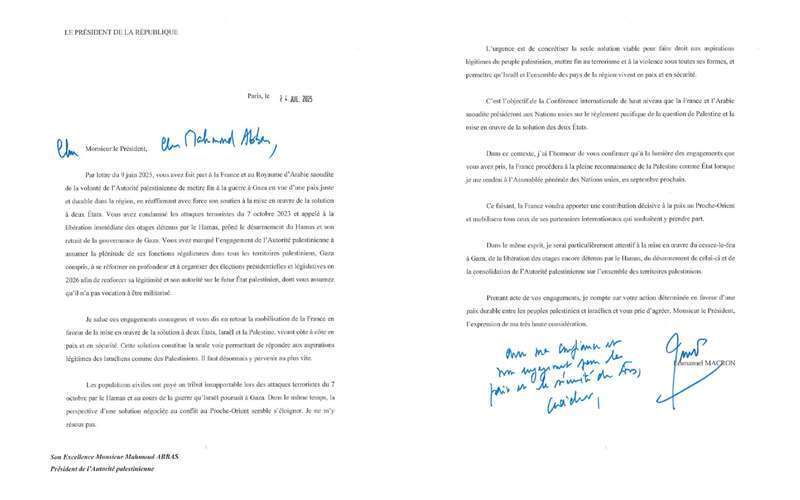 LE PRÉSIDENT DE LA RÉPUBLIQUE
Paris, le 24 JUL. 2025
Cher Monsieur le Président, Cher Mahmoud Abbas,
Par lettre du 9 juin 2025, vous avez fait part à la France et au Royaume d'Arabie saoudite
de la volonté de l'Autorité palestinienne de mettre fin à la guerre à Gaza en vue d'une paix juste
et durable dans la région, en réaffirmant avec force son soutien à la mise en œuvre de la solution
à deux États. Vous avez condamné les attaques terroristes du 7 octobre 2023 et appelé à la
libération immédiate des otages détenus par le Hamas, prôné le désarmement du Hamas et son
retrait de la gouvernance de Gaza. Vous avez marqué l'engagement de l'Autorité palestinienne à
assumer la plénitude de ses fonctions régaliennes dans tous les territoires palestiniens, Gaza
compris, à se réformer en profondeur et à organiser des élections présidentielles et législatives en
2026 afin de renforcer sa légitimité et son autorité sur le futur État palestinien, dont vous assumez
qu'il n'a pas vocation à être militarisé.
Je salue ces engagements courageux et vous dis en retour la mobilisation de la France en
faveur de la mise en œuvre de la solution à deux États, Israël et la Palestine, vivant côte à côte en
paix et en sécurité. Cette solution constitue la seule voie permettant de répondre aux aspirations
légitimes des Israéliens comme des Palestiniens. Il faut désormais y parvenir au plus vite.
Les populations civiles ont payé un tribut insupportable lors des attaques terroristes du 7
octobre par le Hamas et au cours de la guerre qu'Israël poursuit à Gaza. Dans le même temps, la
perspective d'une solution négociée au conflit au Proche-Orient semble s'éloigner. Je ne m'y
résous pas.
Son Excellence Monsieur Mahmoud ABBAS
Président de l'Autorité palestinienne
L'urgence est de concrétiser la seule solution viable pour faire droit aux aspirations
légitimes du peuple palestinien, mettre fin au terrorisme et à la violence sous toutes ses formes, et
permettre qu'Israël et l'ensemble des pays de la région vivent en paix et en sécurité.
C'est l'objectif de la Conférence internationale de haut niveau que la France et l'Arabie
saoudite présideront aux Nations unies sur le règlement pacifique de la question de Palestine et la
mise en œuvre de la solution des deux États.
Dans ce contexte, j'ai l'honneur de vous confirmer qu'à la lumière des engagements que
vous avez pris, la France procédera à la pleine reconnaissance de la Palestine comme État lorsque
je me rendrai à l'Assemblée générale des Nations unies, en septembre prochain.
Ce faisant, la France voudra apporter une contribution décisive à la paix au Proche-Orient
et mobilisera tous ceux de ses partenaires internationaux qui souhaitent y prendre part.
Dans le même esprit, je serai particulièrement attentif à la mise en œuvre du cessez-le-feu
à Gaza, de la libération des otages encore détenus par le Hamas, du désarmement de celui-ci et de
la consolidation de l'Autorité palestinienne sur l'ensemble des territoires palestiniens.
Prenant acte de vos engagements, je compte sur votre action déterminée en faveur d'une
paix durable entre les peuples palestinien et israélien et vous prie d'agréer, Monsieur le Président,
l'expression de ma très haute considération.
Emmanuel MACRON
avec ma confiance et
mon engagement pour la
paix et la sécurité de tous,